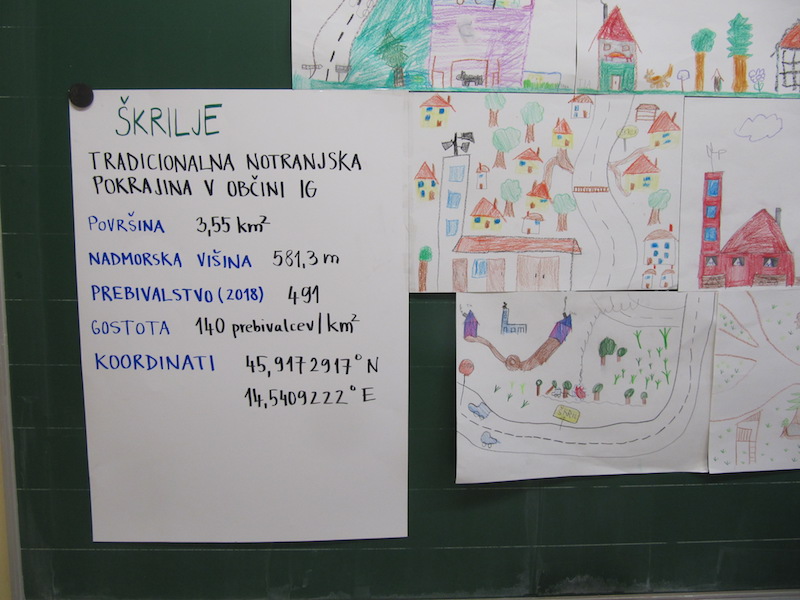 ŠKRILJE
TRADICIONALNA NOTRANJSKA
POKRAJINA V OBČINI IG
POVRŠINA 3,55 km²
NADMORSKA VIŠINA 581,3 m
PREBIVALSTVO (2018) 491
GOSTOTA 140 prebivalcev/km²
KOORDINATI 45,9172917° N
14,5409222° E